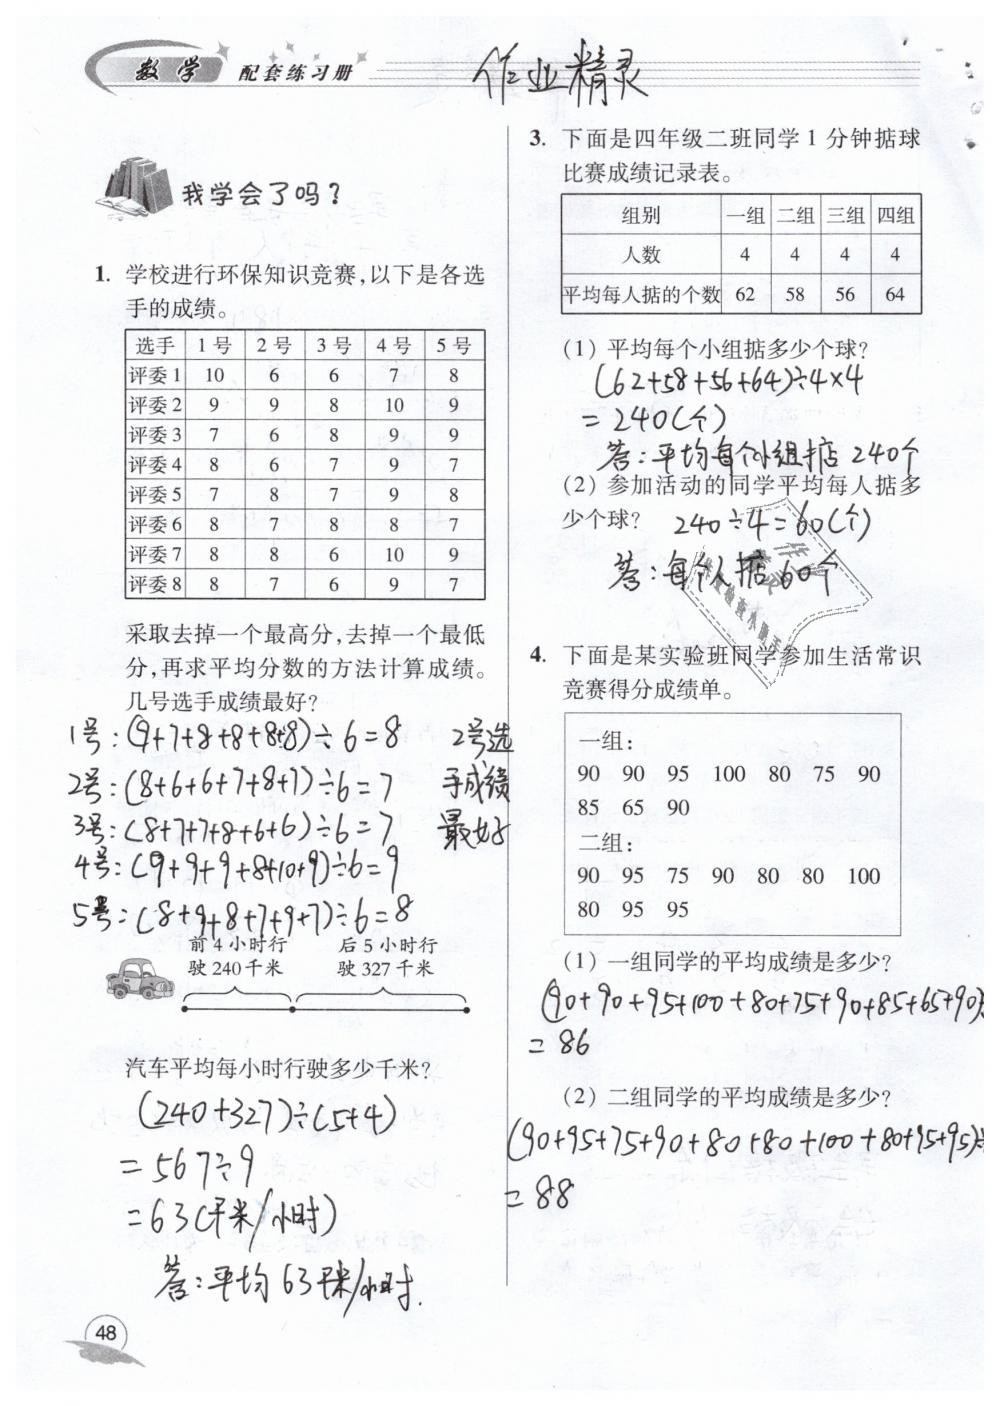 数学 配套练习册
作业精灵
我学会了吗？
1. 学校进行环保知识竞赛，以下是各选
手的成绩。
选手 1号 2号 3号 4号 5号
评委1 10 6 6 7 8
评委2 9 9 8 10 9
评委3 7 6 8 9 9
评委4 8 6 7 9 7
评委5 7 8 7 9 8
评委6 8 7 8 8 7
评委7 8 8 6 10 9
评委8 8 7 6 9 7
采取去掉一个最高分，去掉一个最低
分，再求平均分数的方法计算成绩。
几号选手成绩最好？
1号：(9+7+8+8+8+8)÷6=8
2号：(8+6+6+7+8+7)÷6=7
3号：(8+7+7+8+6+6)÷6=7
4号：(9+9+9+8+10+9)÷6=9
5号：(8+9+8+7+9+7)÷6=8
2号选
手成绩
最好
前4小时行 后5小时行
驶240千米 驶327千米
汽车平均每小时行驶多少千米？
(240+327)÷(5+4)
=567÷9
=63(千米/小时)
答：平均63千米/小时.
48
3. 下面是四年级二班同学1分钟掂球
比赛成绩记录表。
组别 一组 二组 三组 四组
人数 4 4 4 4
平均每人掂的个数 62 58 56 64
(1) 平均每个小组掂多少个球？
(62+58+56+64)÷4×4
=240(个)
答：平均每个小组掂240个
(2) 参加活动的同学平均每人掂多
少个球？ 240÷4=60(个)
答：每个人掂60个
4. 下面是某实验班同学参加生活常识
竞赛得分成绩单。
一组：
90 90 95 100 80 75 90
85 65 90
二组：
90 95 75 90 80 80 100
80 95 95
(1) 一组同学的平均成绩是多少？
(90+90+95+100+80+75+90+85+65+90)
=86
(2) 二组同学的平均成绩是多少？
(90+95+75+90+80+80+100+80+95+95)
=88